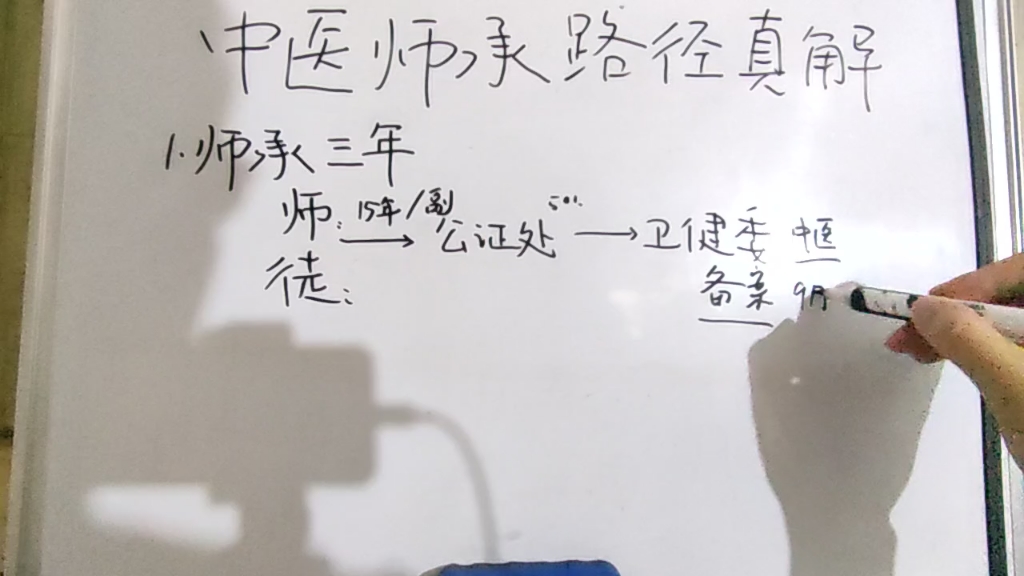 中医师承路径真解
1.师承三年
师: 15年/副 → 公证处 → 卫健委 中医
徒: 备案 9月